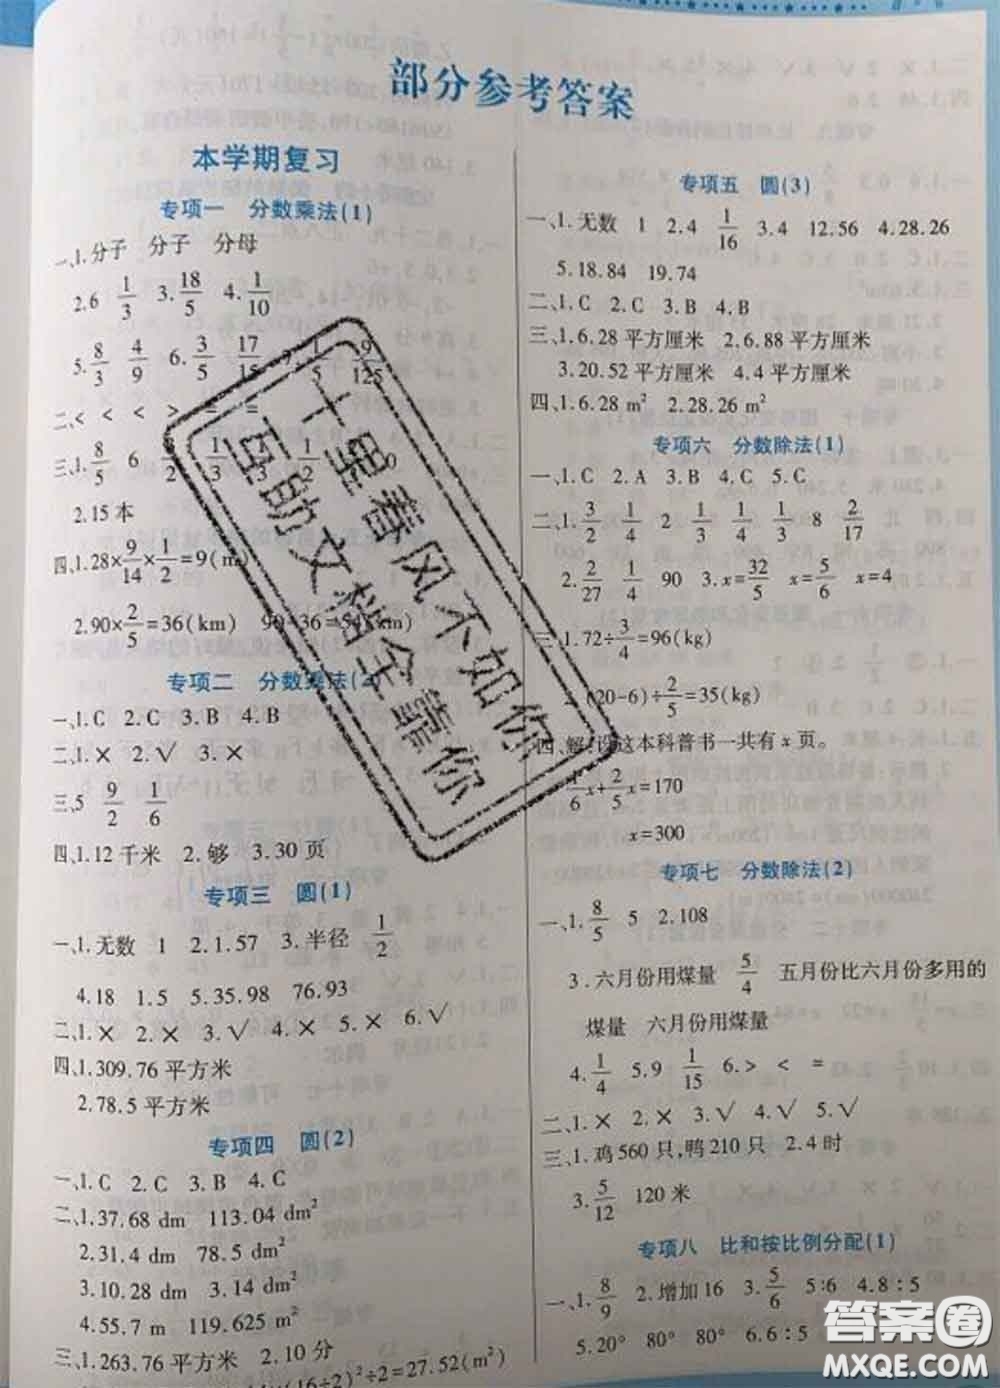 部分参考答案
本学期复习
专项一 分数乘法(1)
一、1.分子 分子 分母
2.6 1/3 3.18/5 4.1/10
5.8/3 4/9 6.3/5 17/15 7.1/5 9/125
二、< < < > = =
三、1.8/5 6 1/3 1/3 1/12
2.15本
四、1.28×9/14×1/2=9(m)
2.90×2/5=36(km) 90-36=54(km)
专项二 分数乘法(2)
一、1.C 2.C 3.B 4.B
二、1.× 2.√ 3.×
三、5 9/2 1/6
四、1.12千米 2.够 3.30页
专项三 圆(1)
一、1.无数 1 2.1.57 3.半径 1/2
4.18 1.5 5.35.98 76.93
二、1.× 2.× 3.√ 4.× 5.× 6.√
四、1.309.76平方米
2.78.5平方米
专项四 圆(2)
一、1.C 2.C 3.B 4.C
二、1.37.68 dm 113.04 dm²
2.31.4 dm 78.5 dm²
3.10.28 dm 3.14 dm²
4.55.7 m 119.625 m²
三、1.263.76平方米 2.10分
(16÷2)²÷2=27.52(m²)
专项五 圆(3)
一、1.无数 1 2.4 1/16 3.4 12.56 4.28.26
5.18.84 19.74
二、1.C 2.C 3.B 4.B
三、1.6.28平方厘米 2.6.88平方厘米
3.20.52平方厘米 4.4平方厘米
四、1.6.28 m² 2.28.26 m²
专项六 分数除法(1)
一、1.C 2.A 3.B 4.C 5.C
二、1.3/2 1/4 2 1/3 1/4 1/3 8 2/17
2.2/27 1/4 90 3.x=32/5 x=5/6 x=4
三、1.72÷3/4=96(kg)
2.(20-6)÷2/5=35(kg)
四、解:设这本科普书一共有x页。
1/6x+2/5x=170
x=300
专项七 分数除法(2)
一、1.8/5 5 2.108
3.六月份用煤量 5/4 五月份比六月份多用的
煤量 六月份用煤量
4.1/4 5.9 1/15 6.> < =
二、1.× 2.× 3.√ 4.√ 5.√
三、1.鸡560只,鸭210只 2.4时
3.5/12 120米
专项八 比和按比例分配(1)
一、1.8/9 2.增加16 3.5/6 5:6 4.8:5
5.20° 80° 80° 6.6:5
十里春风不如你
互助文档全靠你
答案圈
MXQE.COM